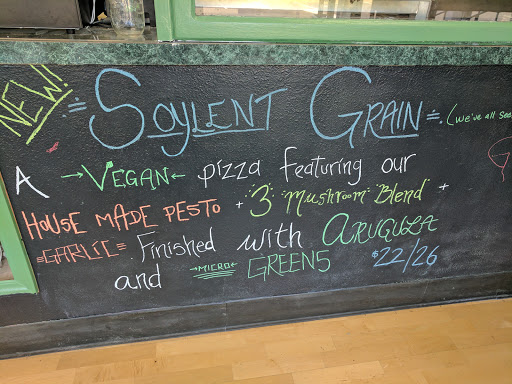 NEW! SOYLENT GRAIN (we've all
A VEGAN pizza featuring our
HOUSE MADE PESTO + 3 Mushroom Blend +
GARLIC. Finished with ARUGULA
and MICRO GREENS $22/26